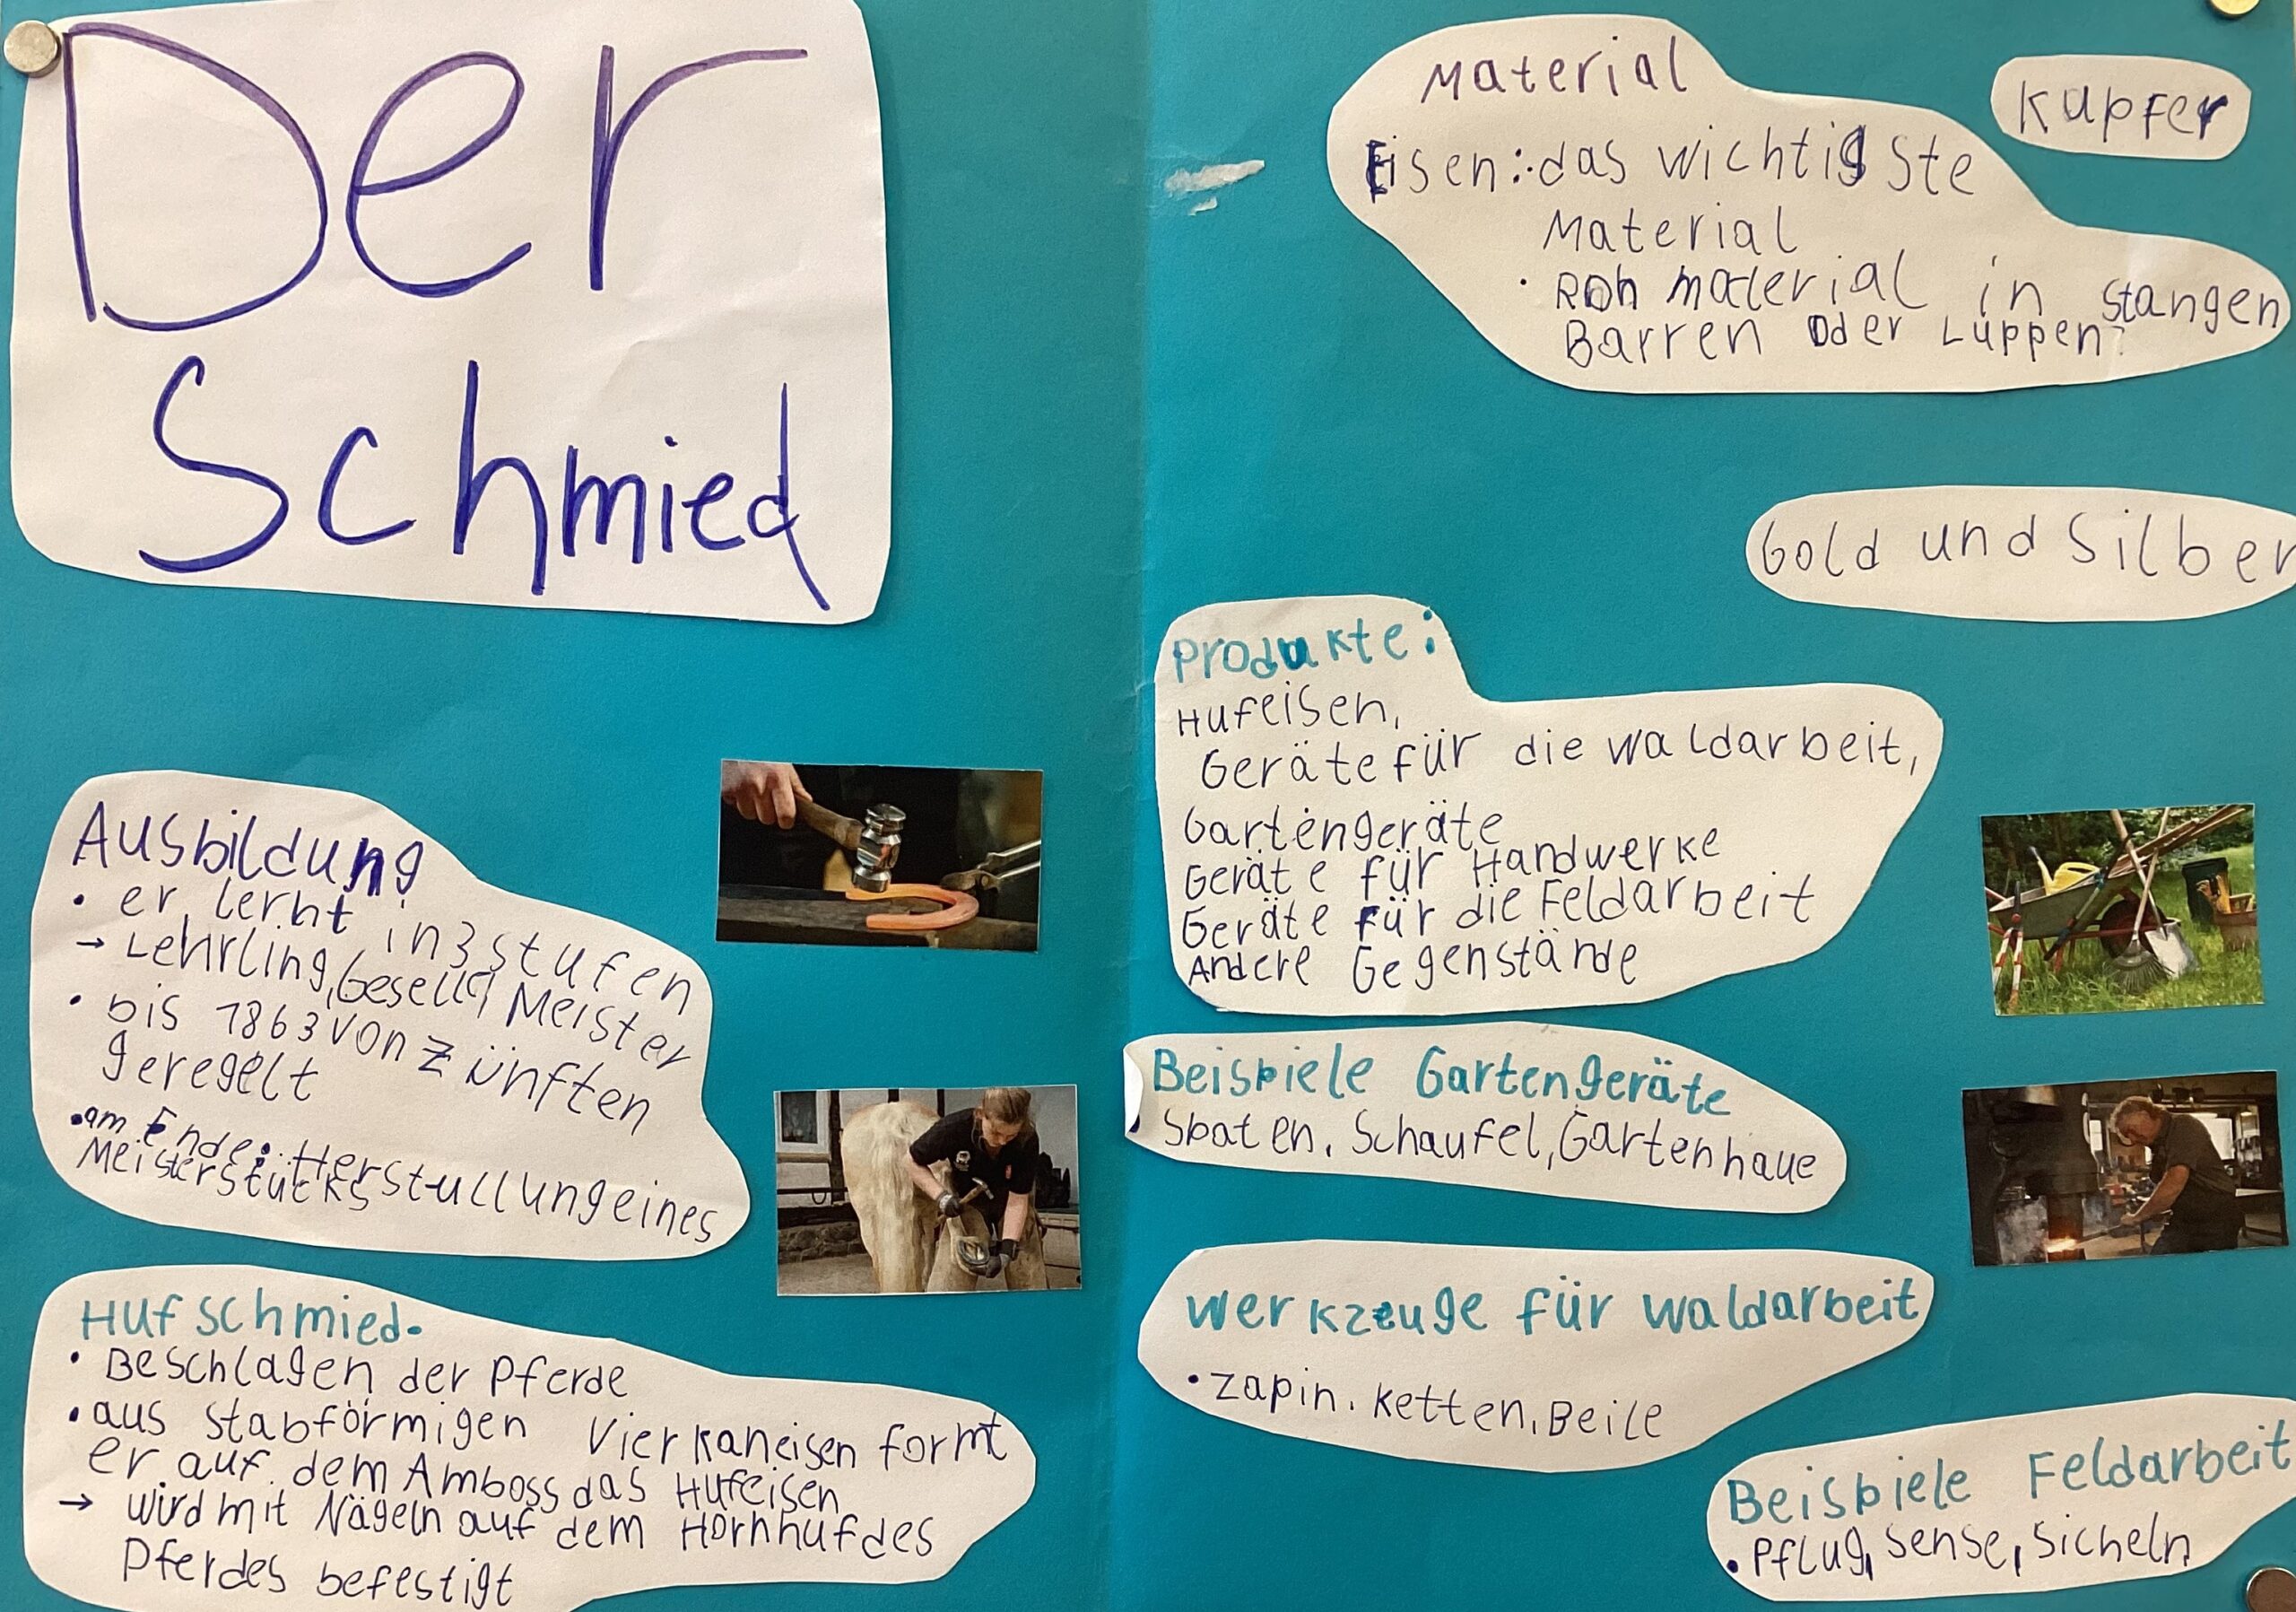 Der
Schmied
Ausbildung
• er lernt in 3 stufen
→ Lehrling, Geselle, Meister
• bis 1863 von Zünften
geregelt
• am Ende: Herstullung eines
Meisterstücks
Hufschmied.
• Beschlagen der Pferde
• aus stabförmigen Vierkaneisen formt
er auf dem Amboss das Hufeisen
→ wird mit Nägeln auf dem Hornhuf des
Pferdes befestigt
Material
Eisen: das wichtigste
Material
• Rohmaterial in stangen
Barren oder Luppen
Kupfer
Gold und Silber
Produkte:
Hufeisen,
Geräte für die waldarbeit,
Gartengeräte
Geräte für Handwerke
Geräte für die Feldarbeit
Andere Gegenstände
Beispiele Gartengeräte
• Spaten, Schaufel, Gartenhaue
werkzeuge für waldarbeit
• Zapin, Ketten, Beile
Beispiele Feldarbeit
• Pflug, Sense, Sicheln